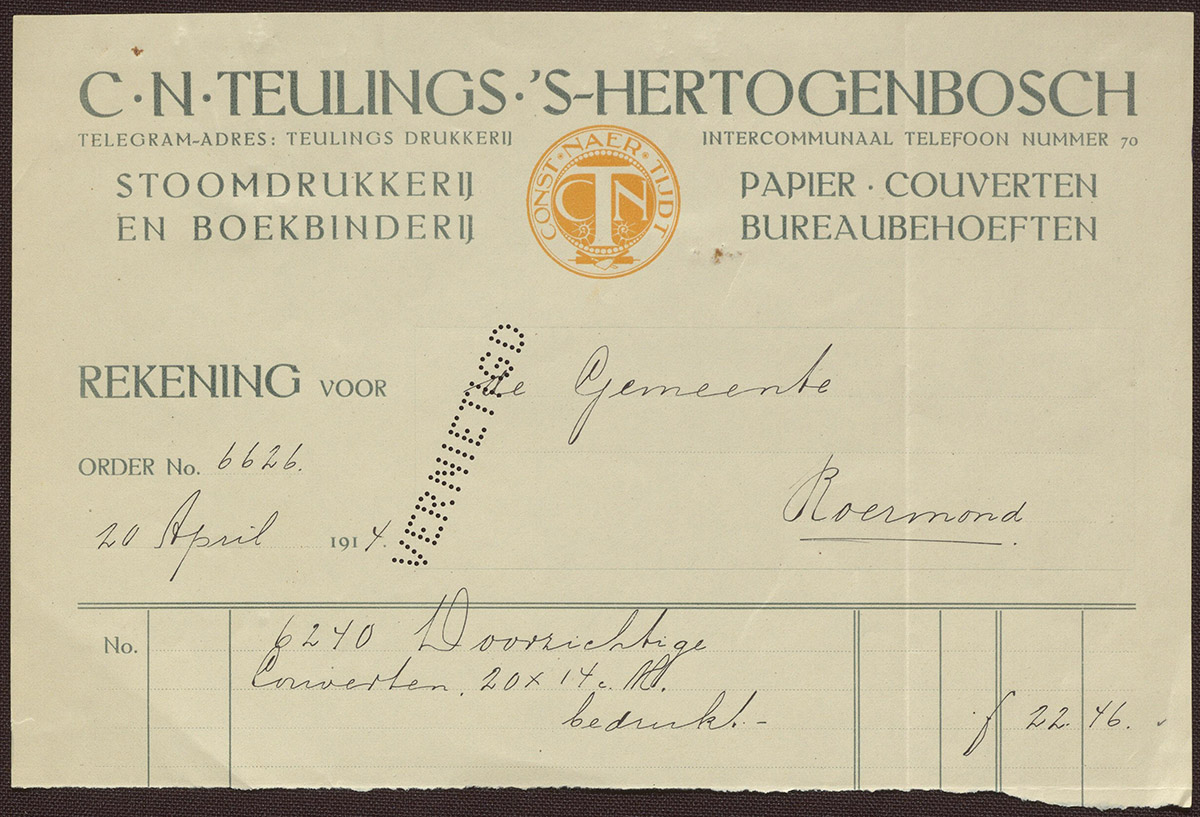 C·N·TEULINGS·'S-HERTOGENBOSCH
TELEGRAM-ADRES: TEULINGS DRUKKERIJ
INTERCOMMUNAAL TELEFOON NUMMER 70
STOOMDRUKKERIJ
EN BOEKBINDERIJ
CONST·NAER·TIJDT
CTN
PAPIER · COUVERTEN
BUREAUBEHOEFTEN
VERNIETIGD
REKENING VOOR de Gemeente
ORDER No. 6626.
Roermond.
20 April 1914.
No. 6240 Doorzichtige
Couverten. 20 x 14 c.M.
bedrukt.- f 22.46.